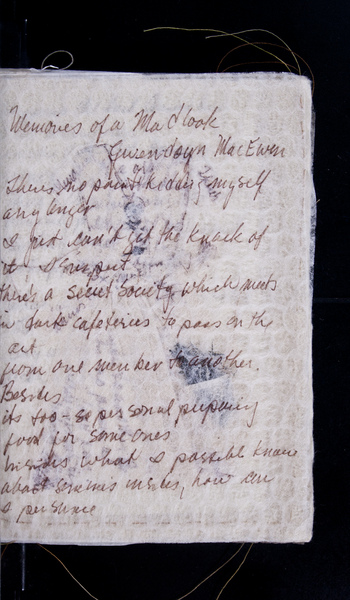 Memories of a Mad Cook
Gwendolyn MacEwen
Theres no point kidding myself
any longer
I just can't get the knack of
it I suspect
there's a secret society which meets
in dark cafeterias to pass on the
art
from one member to another.
Besides
its so personal preparing
food for someones
insides what I possible know
about someones insides, how can
I presume